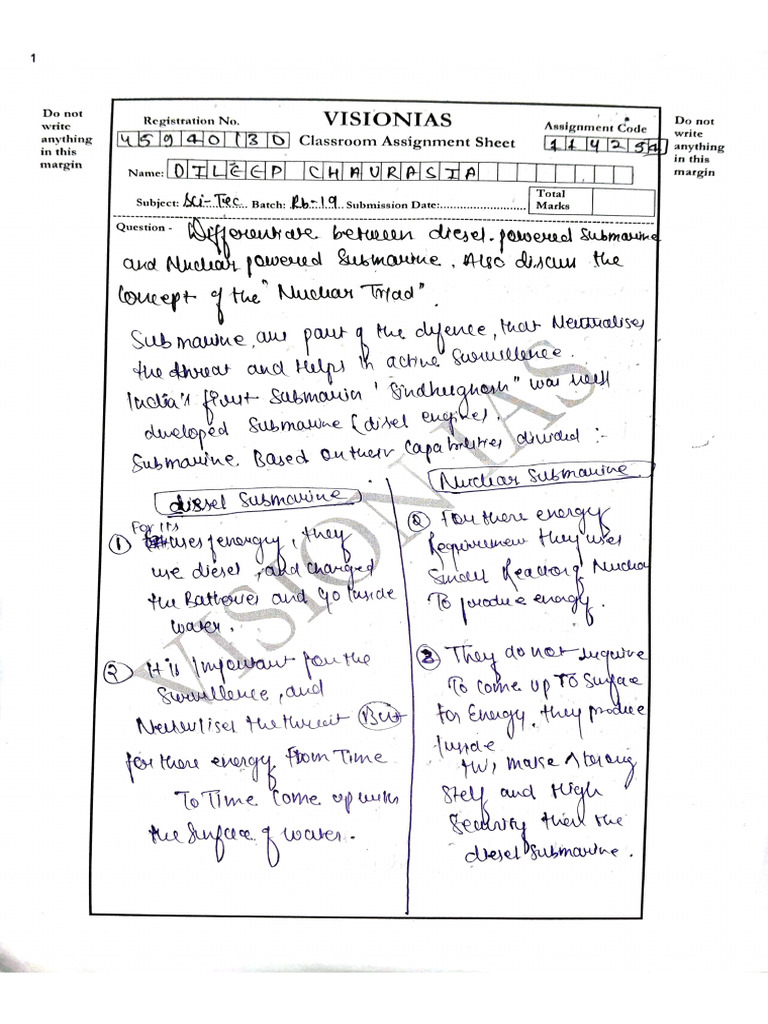 1
Do not
write
anything
in this
margin
Registration No.
45940130
VISIONIAS
Classroom Assignment Sheet
Assignment Code
114254
Do not
write
anything
in this
margin
Name: DILEEP CHAURASIA
Subject: Sci-Tec Batch: Rb-19 Submission Date:
Total
Marks
Question - Differentiate between diesel-powered Submarine
and Nuclear powered Submarine. Also discuss the
Concept of the "Nuclear Triad".
Submarine, are part of the defence, that Neutralises
the threat and Helps in active Surveillence.
India's first Submarin 'Sindhughosh" was
developed Submarine (disel engine).
Submarine. Based on their Capabilities divided :-
diesel Submarine
Nuclear Submarine
For its
① uses energy, they
use diesel, and charged
the Batteries and Go Inside
water.
② It is Important for the
Survillence, and
the threat But
for there energy From Time
To Time Come up with
the Surface of water.
① For there energy
Requirement they uses
Small Reactor Nuclear
To produce energy.
② They do not require
To come up To Surface
For Energy. they produce
Inside
make strong
and High
Security then the
diesel Submarine.
VISION IAS